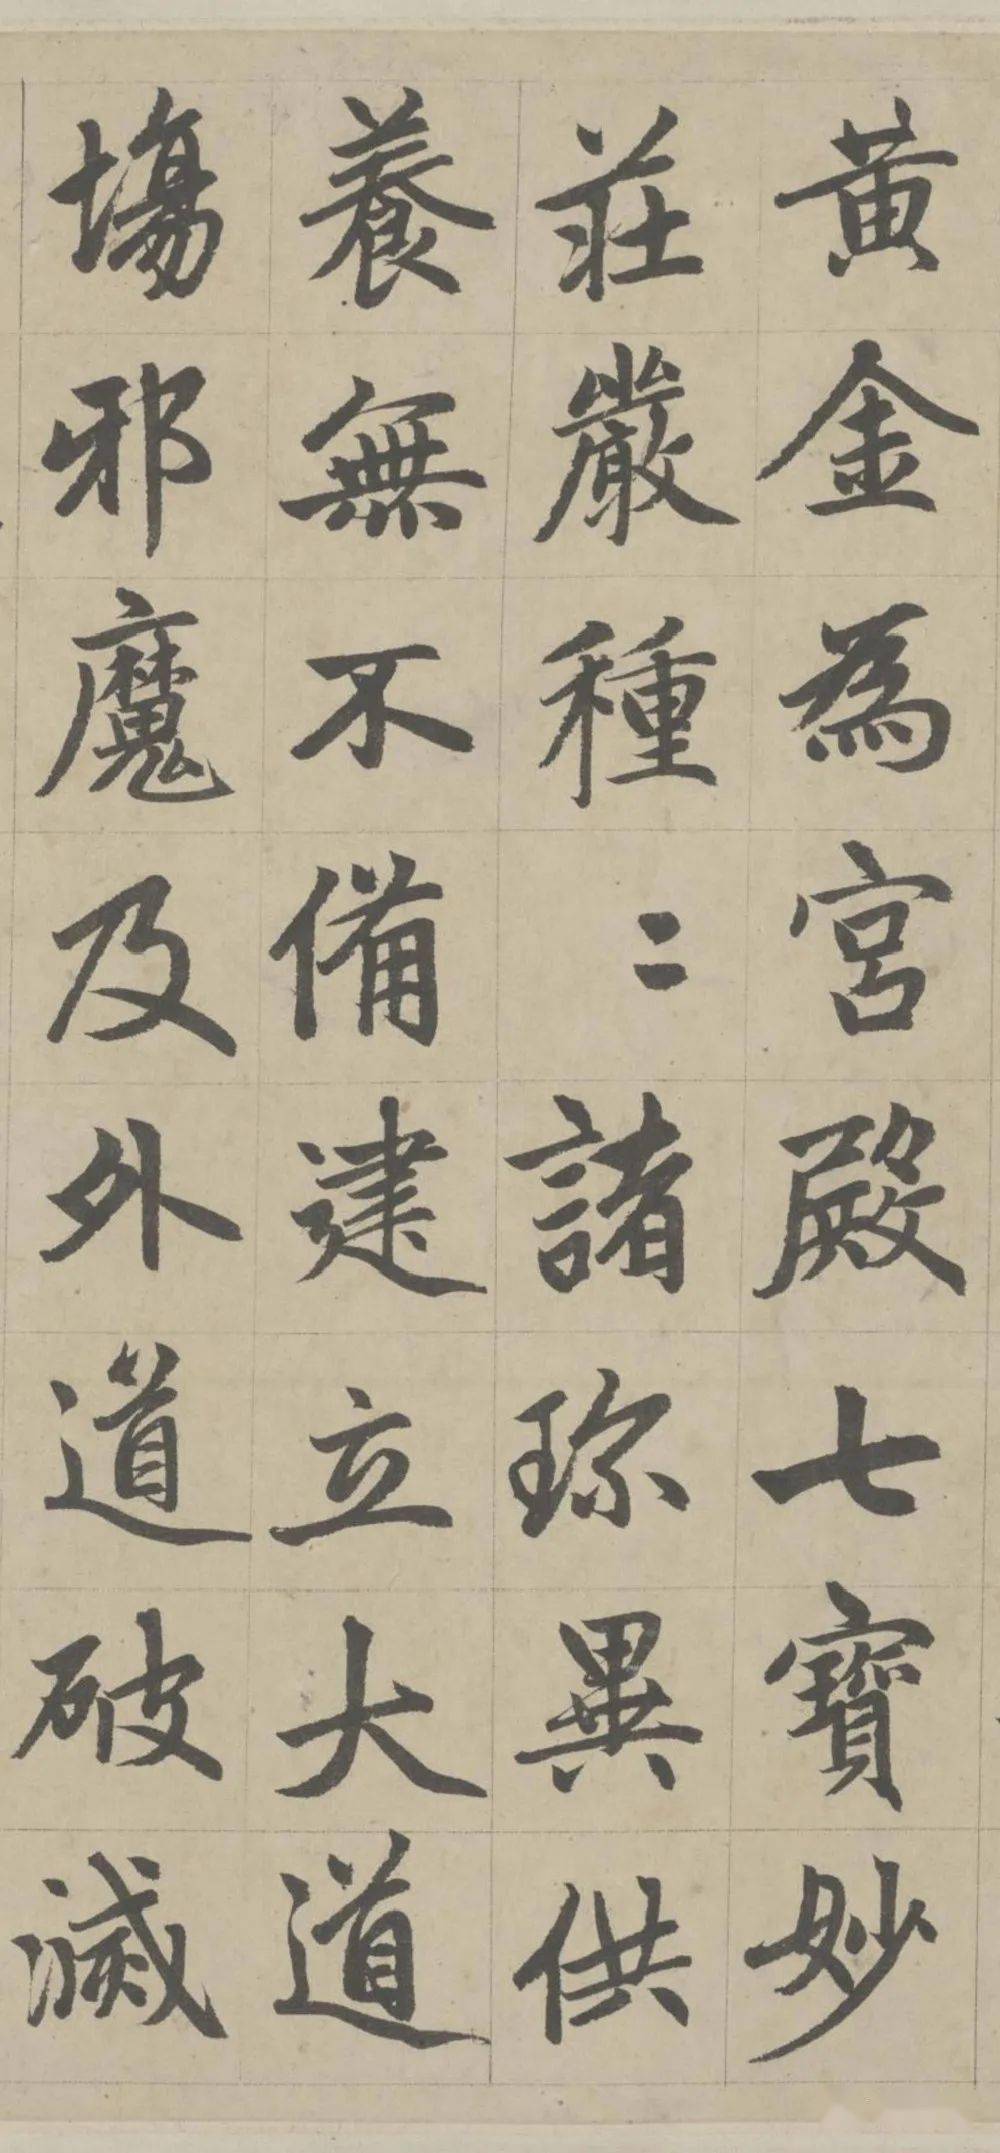 黄金為宫殿七寶妙
莊嚴種〻諸珎異供
養無不備建立大道
場邪魔及外道破滅